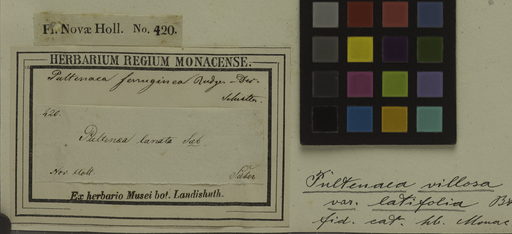 Fl. Novæ Holl. No. 420.
HERBARIUM REGIUM MONACENSE.
Pultenaea ferruginea Rudge. Dec.
420.
Pultenea lanata Sieb
Nov. Holl.
Sieber
Ex herbario Musei bot. Landishuth.
Pultenaea villosa
var. latifolia
fid. cat. hb. Monac